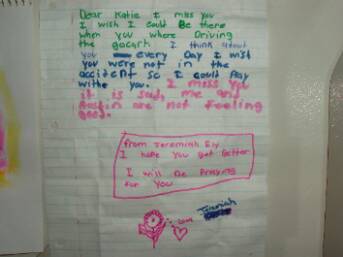 Dear Katie I miss you
I wish I could Be there
when you where Driving
the gocart I think about
you every Day I wish
you were not in the
accident so I could Play
withe you. I miss you
it is sad, me and
Austin are not feeling
good.
from Jeremiah
I hope you get Better
I will be Praying
for You
Love
Jeremiah